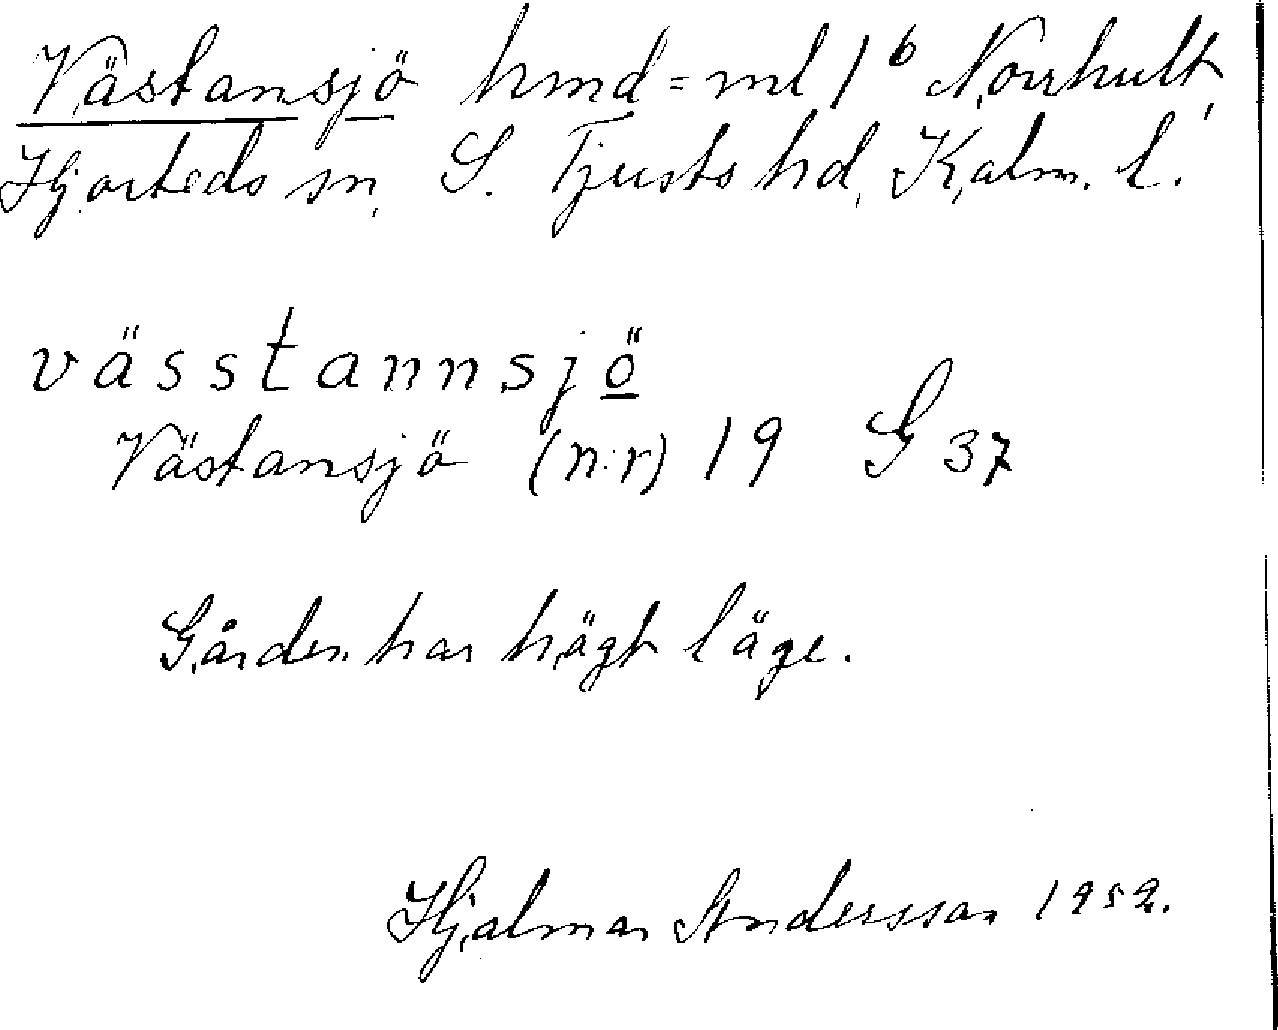 Västansjö hmd = ml 1⁶ Norrhult,
Hjorteds sn, S. Tjusts hd, Kalm. l.
vässtannsjö
Västansjö (n:r) 19 G 37
Gården har högt läge.
Hjalmar Andersson 1952.